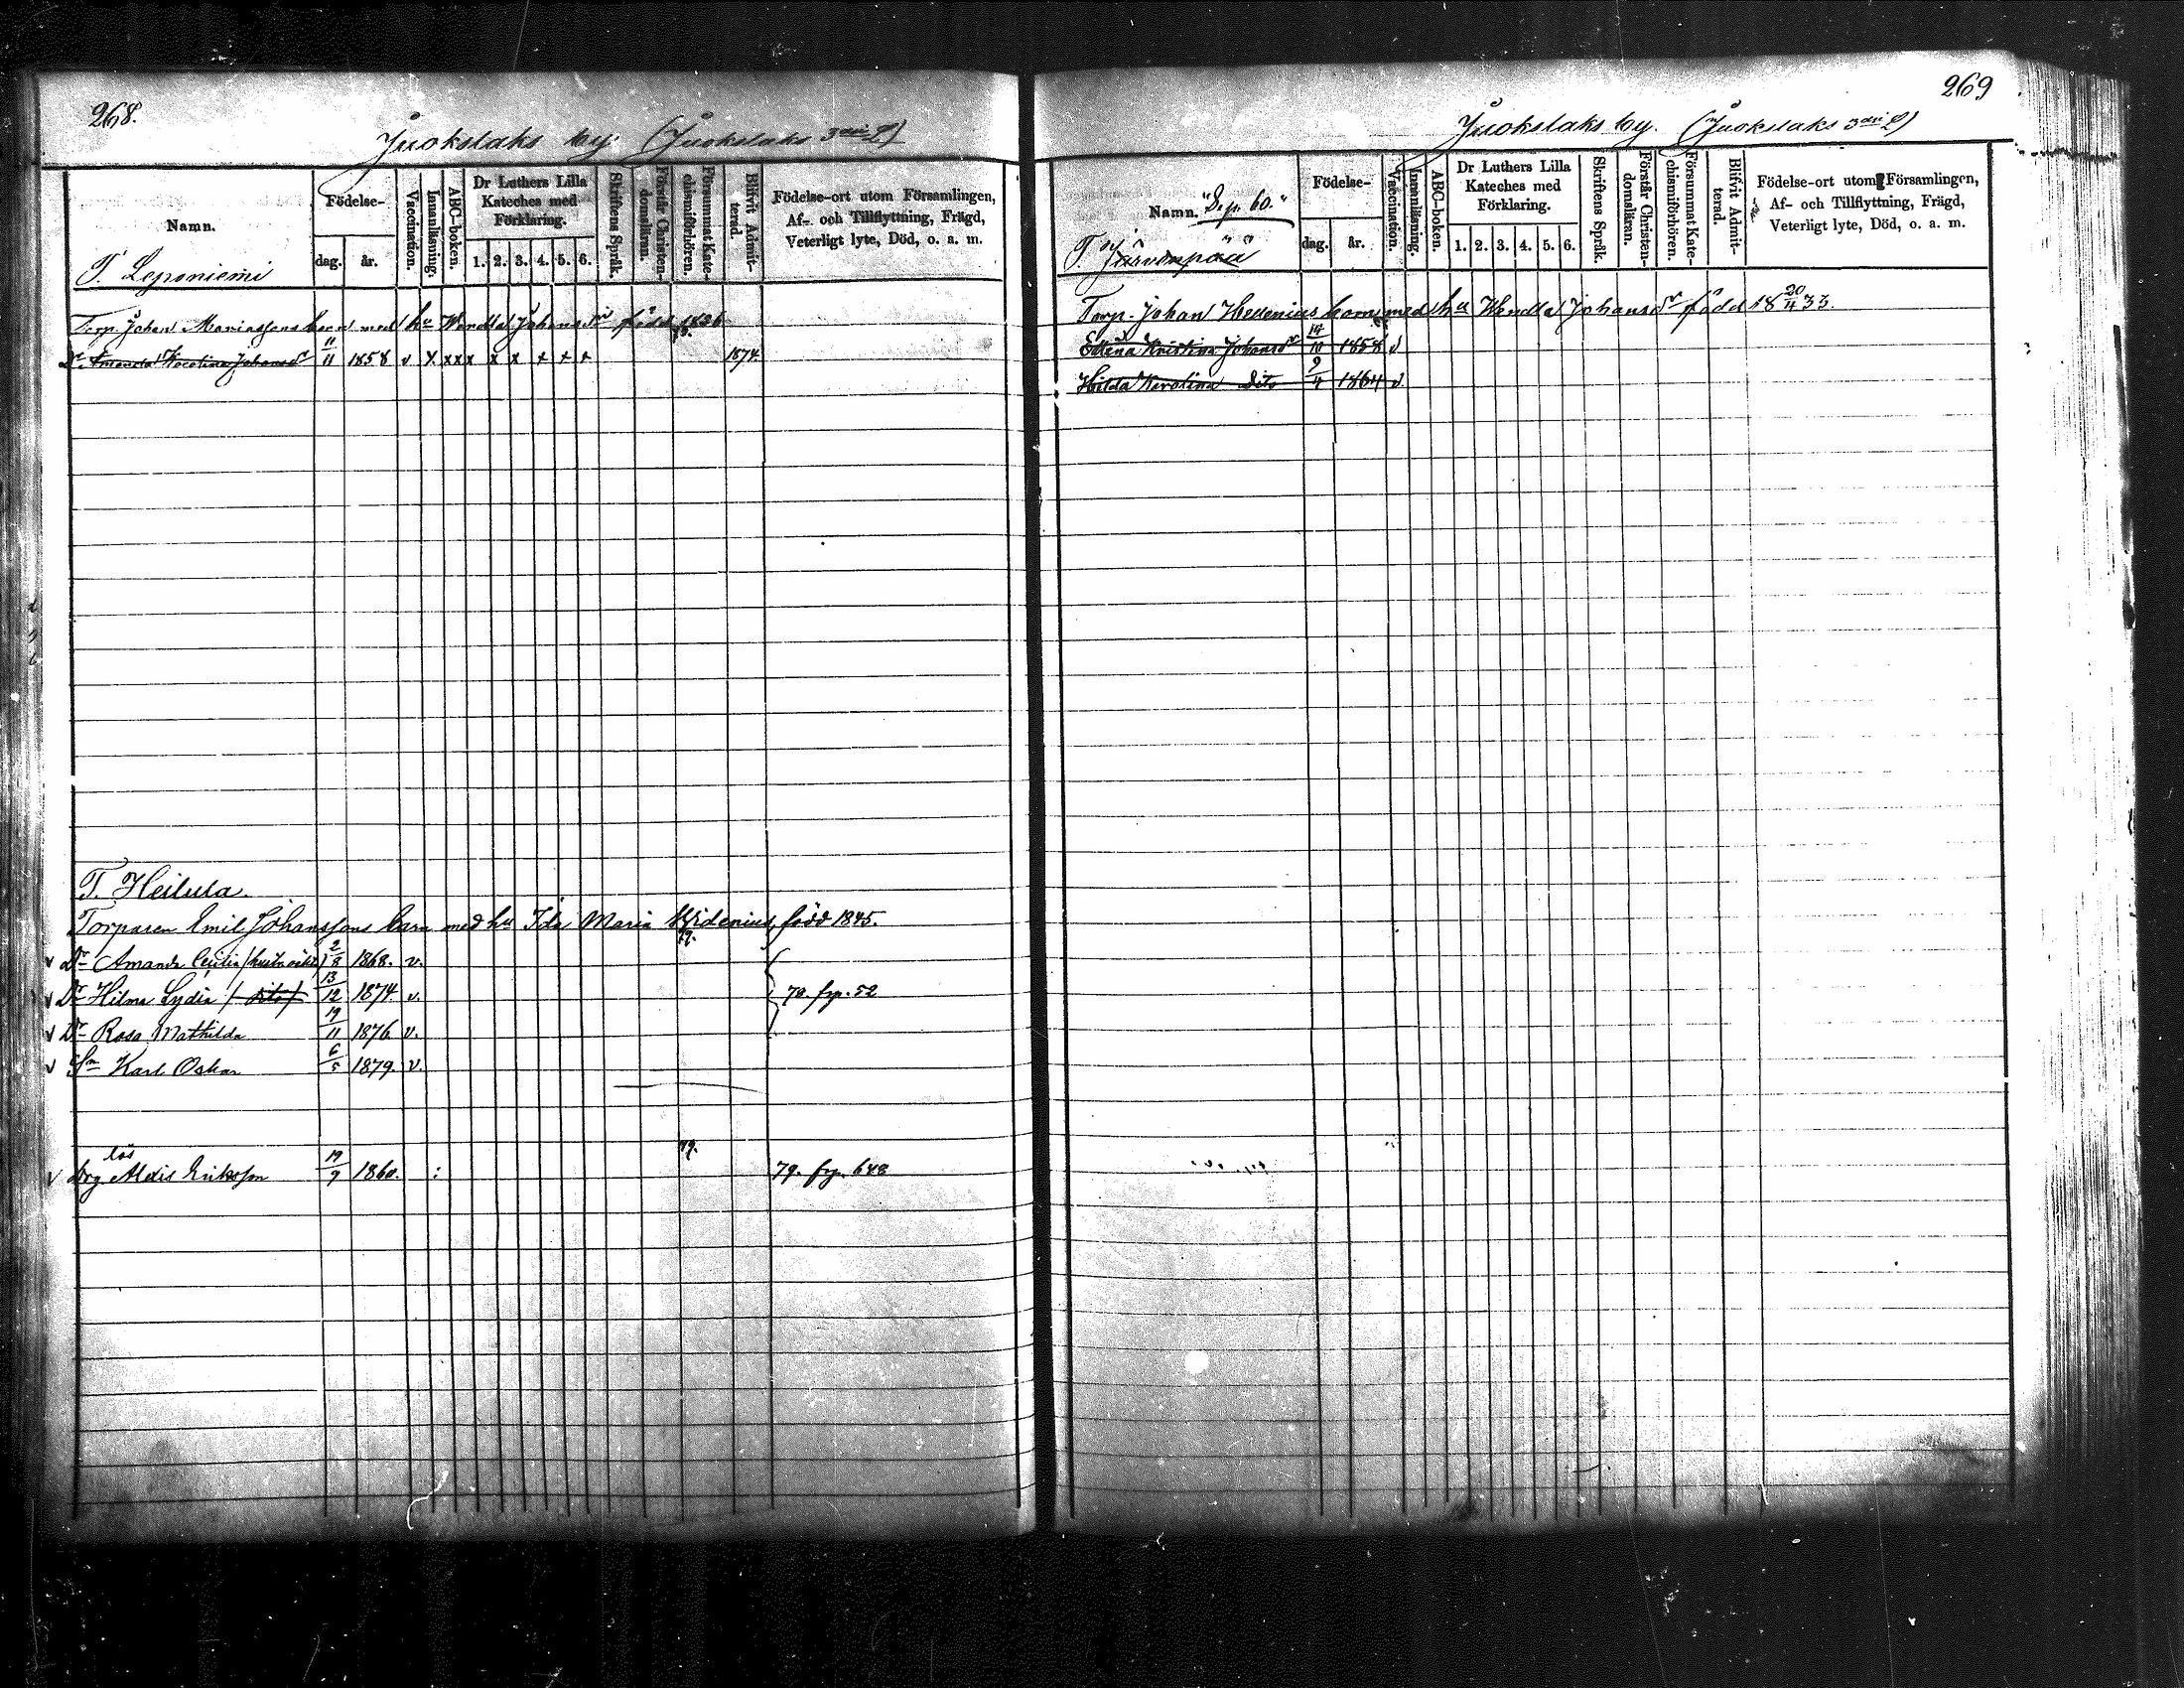 268.
Juokslaks by. (Juokslaks 3die 2)
Namn.
Födelse-
dag.
år.
Vaccination.
Innanläsning.
ABC-boken.
Dr Luthers Lilla Kateches med Förklaring.
1. 2. 3. 4. 5. 6.
Skriftens Språk.
Förstår Christen-domsläran.
Försummat Kate-chismiförhören.
Blifvit Admit-terad.
Födelse-ort utom Församlingen,
Af- och Tillflyttning, Frägd,
Veterligt lyte, Död, o. a. m.
T. Leponiemi
Torp. Johan Mariassons barn med hu Wendla Johansdr född 1836
Dr Amanda Karolina Johansdr 11/11 1858 v x x x x x x x + + + 1874
T. Heilula.
Torparen Emil Johanssons barn med hu Ida Maria Widenius, född 1845.
79.
v Dr Amanda Cecilia 2/8 1868. v.
v Dr Hilma Lydia / dito / 13/12 1874. v. 70. frp. 52
v Dr Rosa Mathilda 19/11 1876. v.
v Sn Karl Oskar 6/5 1879. v.
79.
lös
v Drg Alexis Eriksson 19/9 1860. 79. frp. 648
269
Juokslaks by. (Juokslaks 3die 2)
Namn. "S. p. 60."
Födelse-
dag.
år.
Vaccination.
Innanläsning.
ABC-boken.
Dr Luthers Lilla Kateches med Förklaring.
1. 2. 3. 4. 5. 6.
Skriftens Språk.
Förstår Christen-domsläran.
Försummat Kate-chismiförhören.
Blifvit Admit-terad.
Födelse-ort utom Församlingen,
Af- och Tillflyttning, Frägd,
Veterligt lyte, Död, o. a. m.
T. Järvenpää
Torp. Johan Hedenius barn med hu Wendla Johansdr född 18 20/4 33.
Edlena Kristina Johansdr 14/10 1858 v
Hilda Karolina dito 9/4 1864 v